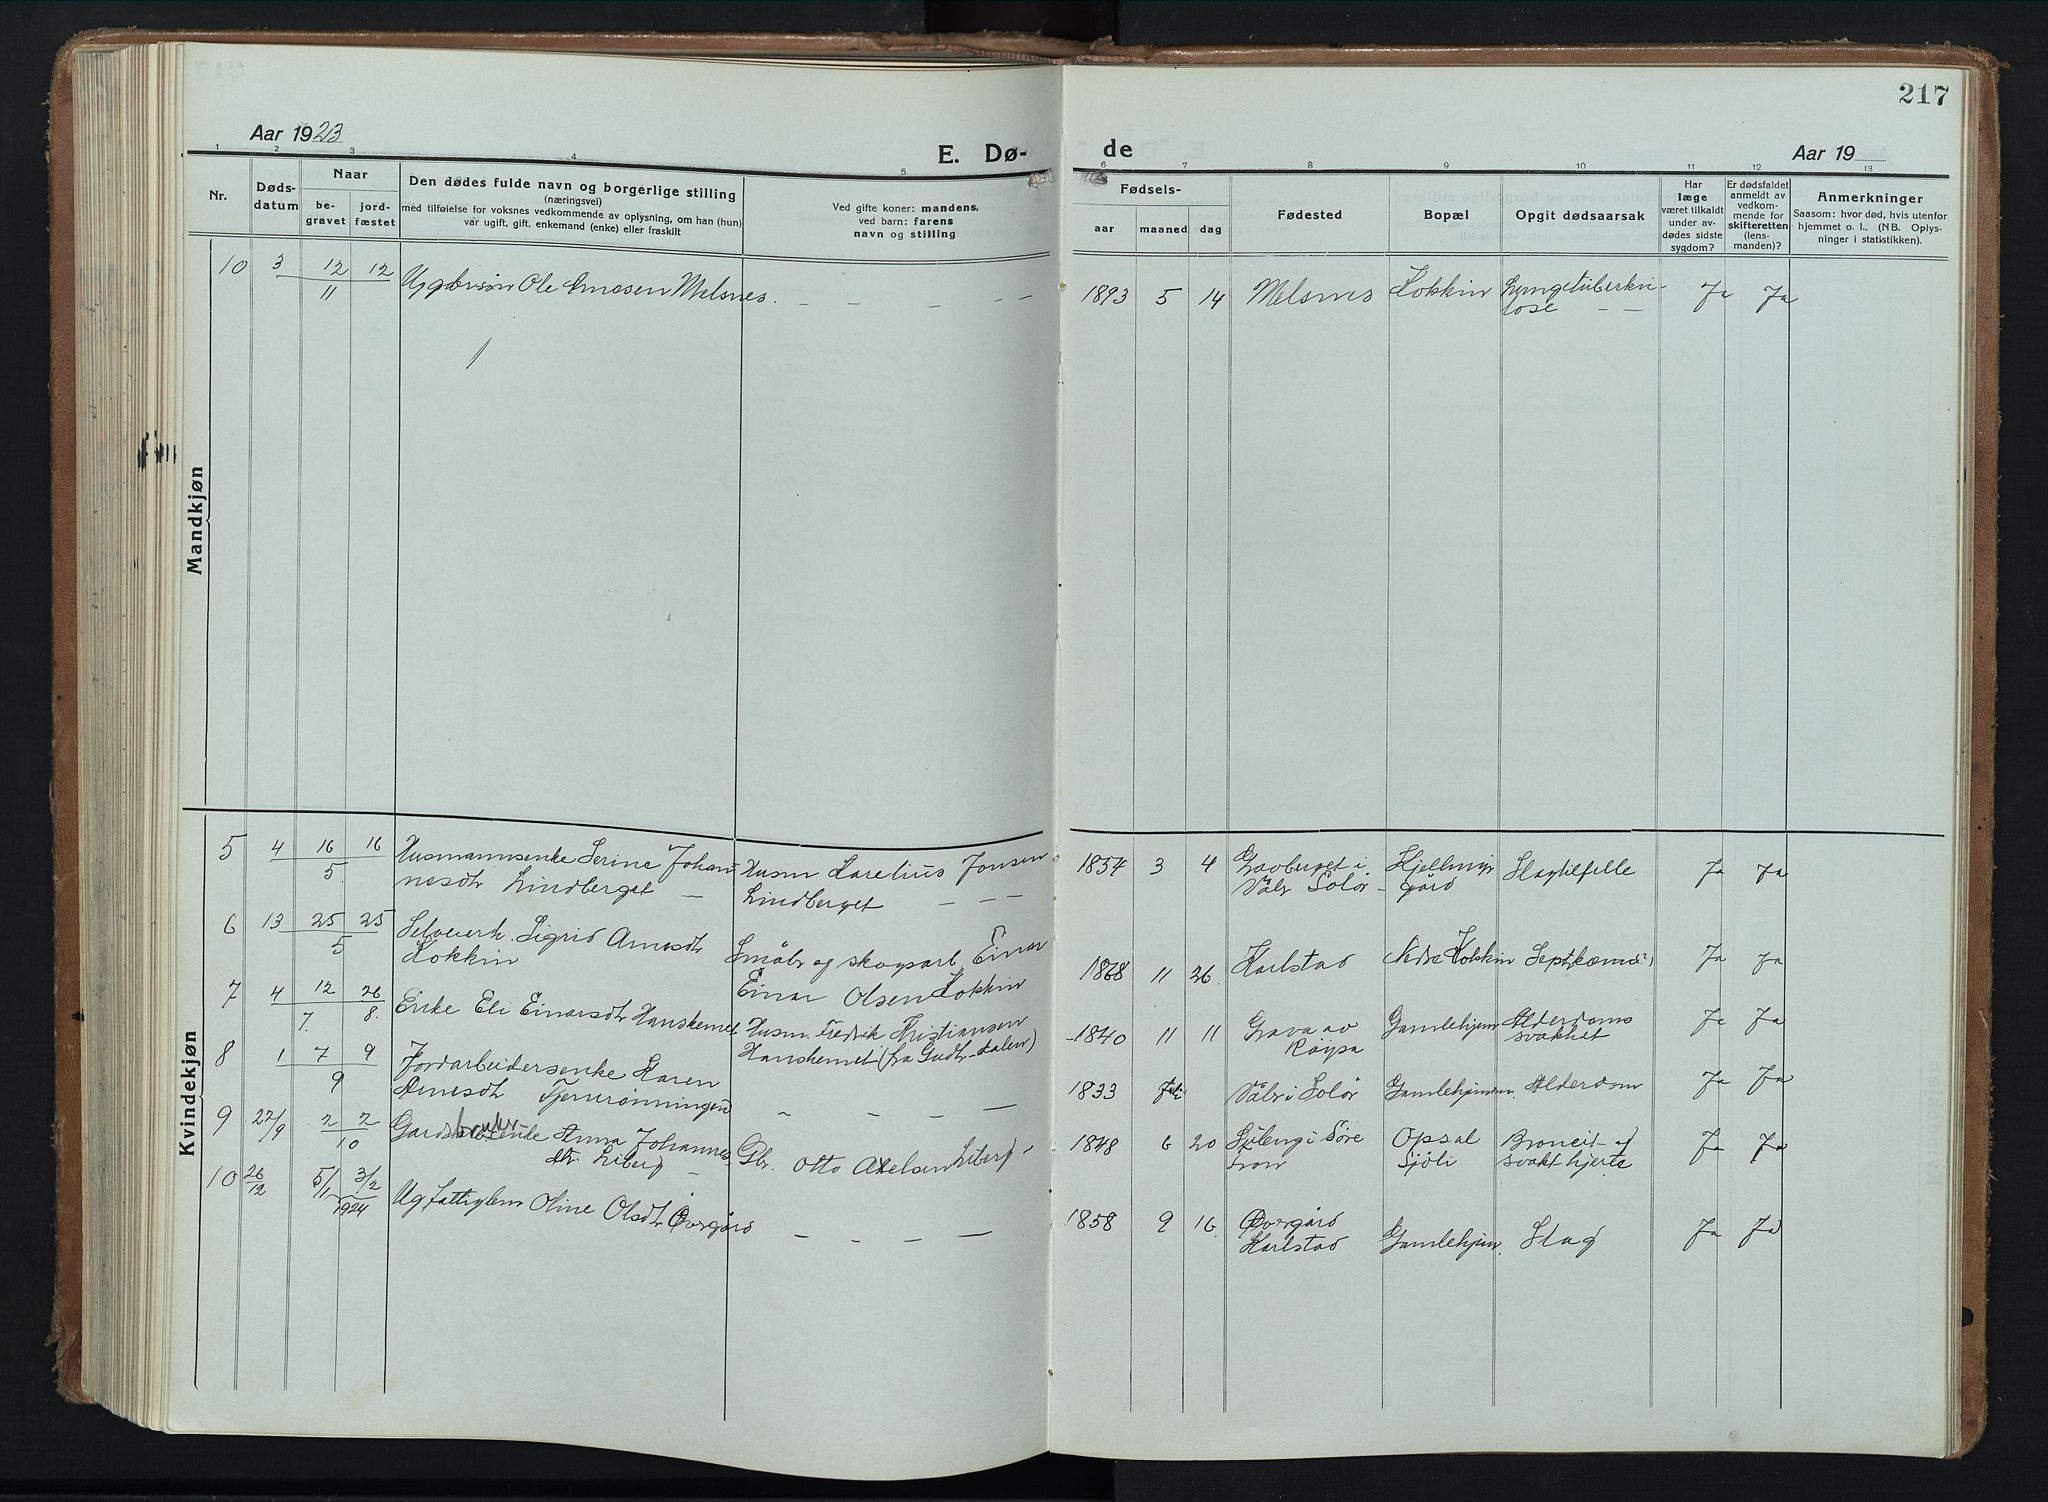 217
Aar 1923
E. Dø-
de
Aar 19
1 2 3 4 5 6 7 8 9 10 11 12 13
Nr.
Døds-
datum
Naar
be-
gravet
jord-
fæstet
Den dødes fulde navn og borgerlige stilling
(næringsvei)
med tilføielse for voksnes vedkommende av oplysning, om han (hun)
var ugift, gift, enkemand (enke) eller fraskilt
Ved gifte koner: mandens,
ved barn: farens
navn og stilling
Fødsels-
aar
maaned
dag
Fødested
Bopæl
Opgit dødsaarsak
Har
læge
været tilkaldt
under av-
dødes sidste
sygdom?
Er dødsfaldet
anmeldt av
vedkom-
mende for
skifteretten
(lens-
manden)?
Anmerkninger
Saasom: hvor død, hvis utenfor
hjemmet o. l.. (NB. Oplys-
ninger i statistikken).
Mandkjøn
10 3 12 12
11
Ole Melsnes. — — — — —
1893 5 14 Melsnes Kokkin Lungetuberku-
lose — —
Ja Ja
1
Kvindekjøn
5 4 16 16
5.
Husmannsenke Serine Johan-
nesdtr Lindberget —
Husm Karelius Jonsen
Lindberget — — —
1854 3 4 i
Våler Solør -
Kjellmyr
gård
Slagtilfelle Ja Ja
6 13 25 25
5
Selveierk. Sigrid Arnesdtr
Kokkin
Småbr og skogsarb. Einar
Einar Olsen Kokkin
1868 11 26 Karlstad Nedre Kokkin Ja Ja
7 4 12 26
7. 8.
Enke Eli Einarsdtr Hanskemet
Husm. Fredrik Kristiansen
Hanskemet (fra Gudbr-dalen)
1840 11 11 Grava av
Gamlehjem Alderdoms
svakhet
Ja Ja
8 1 7 9
9
Jordarbeidersenke Karen
Arnesdtr
— — — —
1833 Våler i Solør Gamlehjemmet. Alderdom Ja Ja
9 27/9 2 2
10
Gardbrukerenke Anna Johannes-
dtr. Liberg —
Gbr. Otto Axelsen Liberg -
1848 6 20 i Søre
Opsal
Sjøli
Broncit- og
svakt hjerte
Ja Ja
10 26/12 5/1 3/2
1924
Ug. fattiglem Oline Olsdtr Øvergård
— — — —
1858 9 16. Øvergård
Karlstad
Gamlehjem. Slag Ja Ja